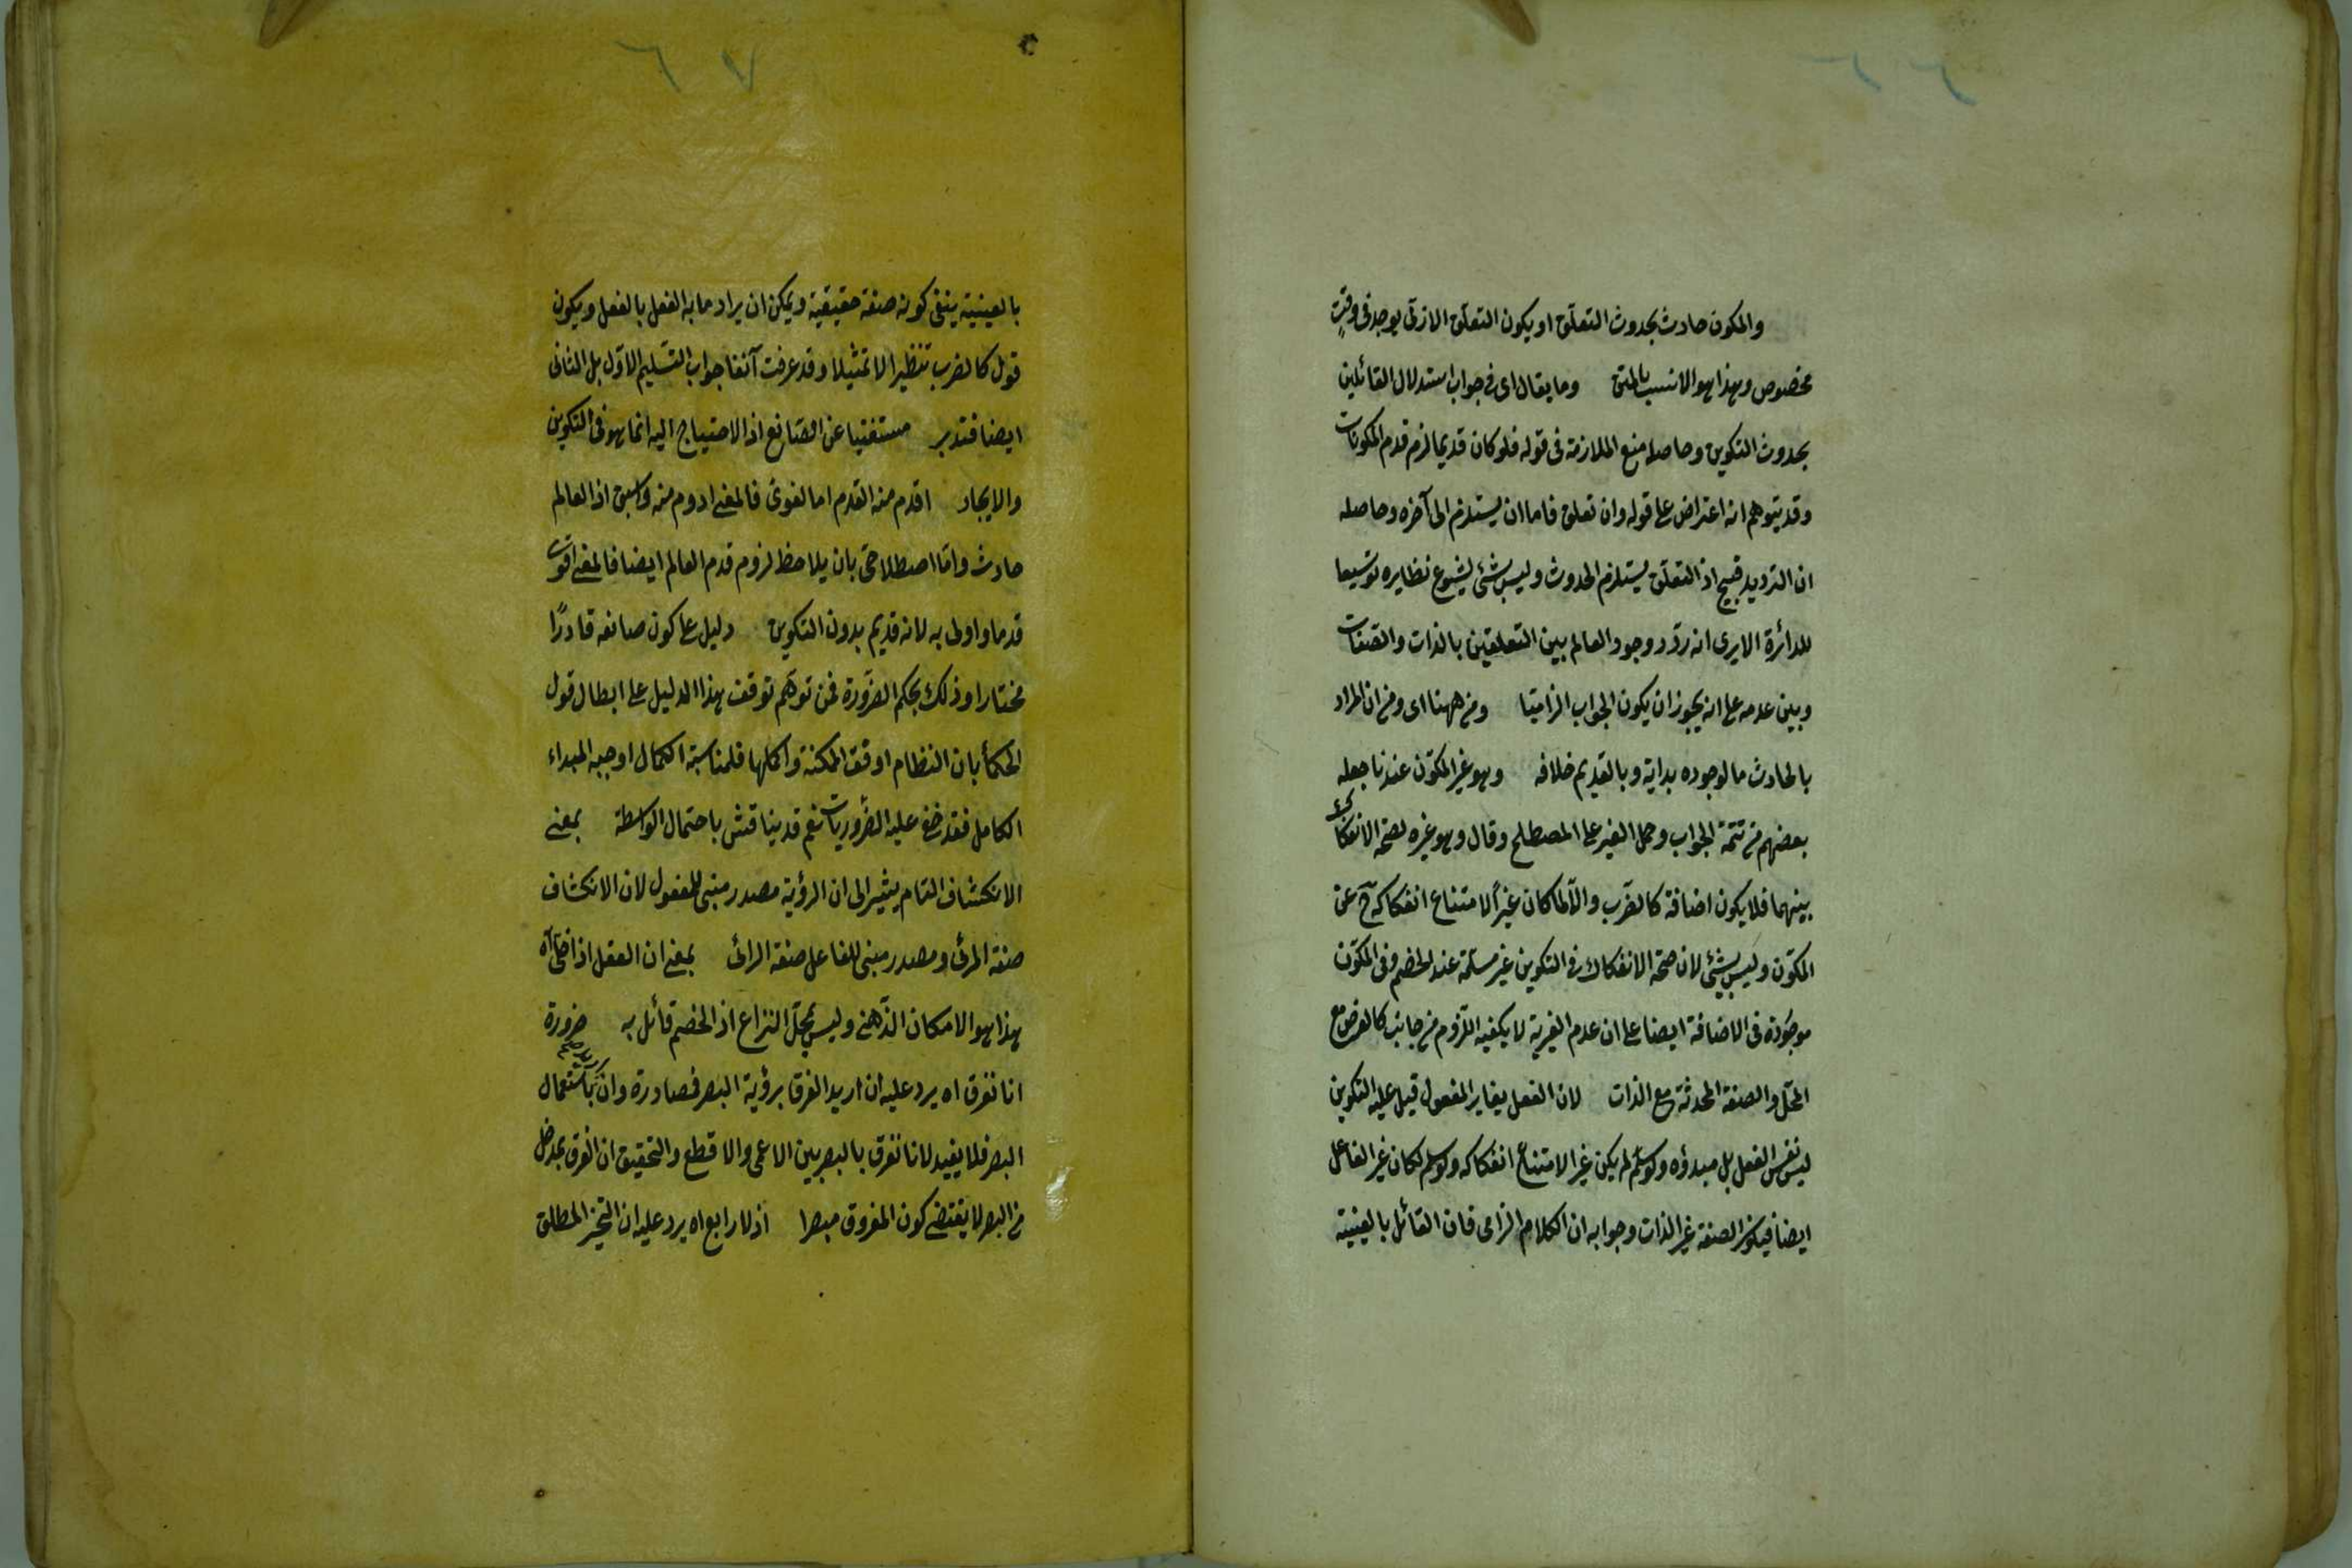 والمكون حادث بحدوث التعلق او يكون التعلق الازلى بوجوده فى وقت
مخصوص وهذا هو الانسب بالمتن وما يقال اى فى جواب استدلال القائلين
بحدوث التكوين وحاصله منع الملازمة فى قوله فلو كان قديما لزم قدم المكونات
وقد يتوهم انه اعتراض على قوله وان تعلق فاما ان يستلزم الى آخره وحاصله
ان الترديد قبيح اذ التعلق يستلزم الحدوث وليس بشئ لشيوع نظايره توسيعا
للدائرة الا يرى انه ردد وجود العالم بين التعلقين بالذات والصفات
وبين عدمه على انه يجوز ان يكون الجواب الزاميا ومن ههنا اى ومن ان المراد
بالحادث ما لوجوده بداية وبالقديم خلافه وهو غير المكون عندنا جعله
بعضهم من تتمة الجواب وحمل الغير على المصطلح وقال وهو غيره لصحة الانفكاك
بينهما فلا يكون اضافة كالضرب والا لما كان غيرا لامتناع انفكاكه ح عن
المكون وليس بشئ لان صحة الانفكاك فى التكوين غير مسلمة عند الخصم وفى المكون
موجودة فى الاضافة ايضا على ان عدم الغيرية لا يكفيه اللزوم من جانب كالعرض مع
المحل والصفة المحدثة مع الذات لان الفعل يغاير المفعول قيل عليه التكوين
ليس نفس الفعل بل مبدؤه ولو سلم لم يكن غيرا لامتناع انفكاكه ولو سلم لكان غير الفاعل
ايضا فيكون الصفة غير الذات وجوابه ان الكلام الزامى فان القائل بالعينية
٦٧
بالعينية ينفى كونه صفة حقيقية ويمكن ان يراد ما به الفعل بالفعل ويكون
قوله كالضرب تنظيرا لا تمثيلا وقد عرفت آنفا جواب التسليم الاول بل الثانى
ايضا فتدبر مستغنيا عن الصانع اذ الاحتياج اليه انما هو فى التكوين
والايجاد اقدم منه القدم اما لغوى فالمعنى ادوم منه واسبق اذ العالم
حادث واما اصطلاحى بان يلاحظ لزوم قدم العالم ايضا فالمعنى اقوى
قدما واولى به لانه قديم بدون التكوين دليل على كون صانعه قادرًا
مختارا وذلك بحكم الضرورة فمن توهم توقف هذا الدليل على ابطال قول
الحكمأ بان النظام اوفق الممكنة واكملها فلمناسبة الكمال اوجبه المبداء
الكامل فقد خفى عليه الضروريات نعم قد يناقش باحتمال الواسطة بمعنى
الانكشاف التام يشير الى ان الرؤية مصدر مبنى للمفعول لان الانكشاف
صفة المرئى ومصدر مبنى للفاعل صفة الرائى بمعنى ان العقل اذا خلى آه
هذا هو الامكان الذهنى وليس بمحل النزاع اذ الخصم قائل به ضرورة
انا نفرق اه يرد عليه ان اريد الفرق برؤية البصر فمصادرة وان اريد باستعمال
البصر فلا يفيد لانا نفرق بالبصر بين الاعمى والاقطع والتحقيق ان الفرق بمدخل
من البصر لا يقتضى كون المفروق مبصرا اذ لا رابع اه يرد عليه ان التحيز المطلق